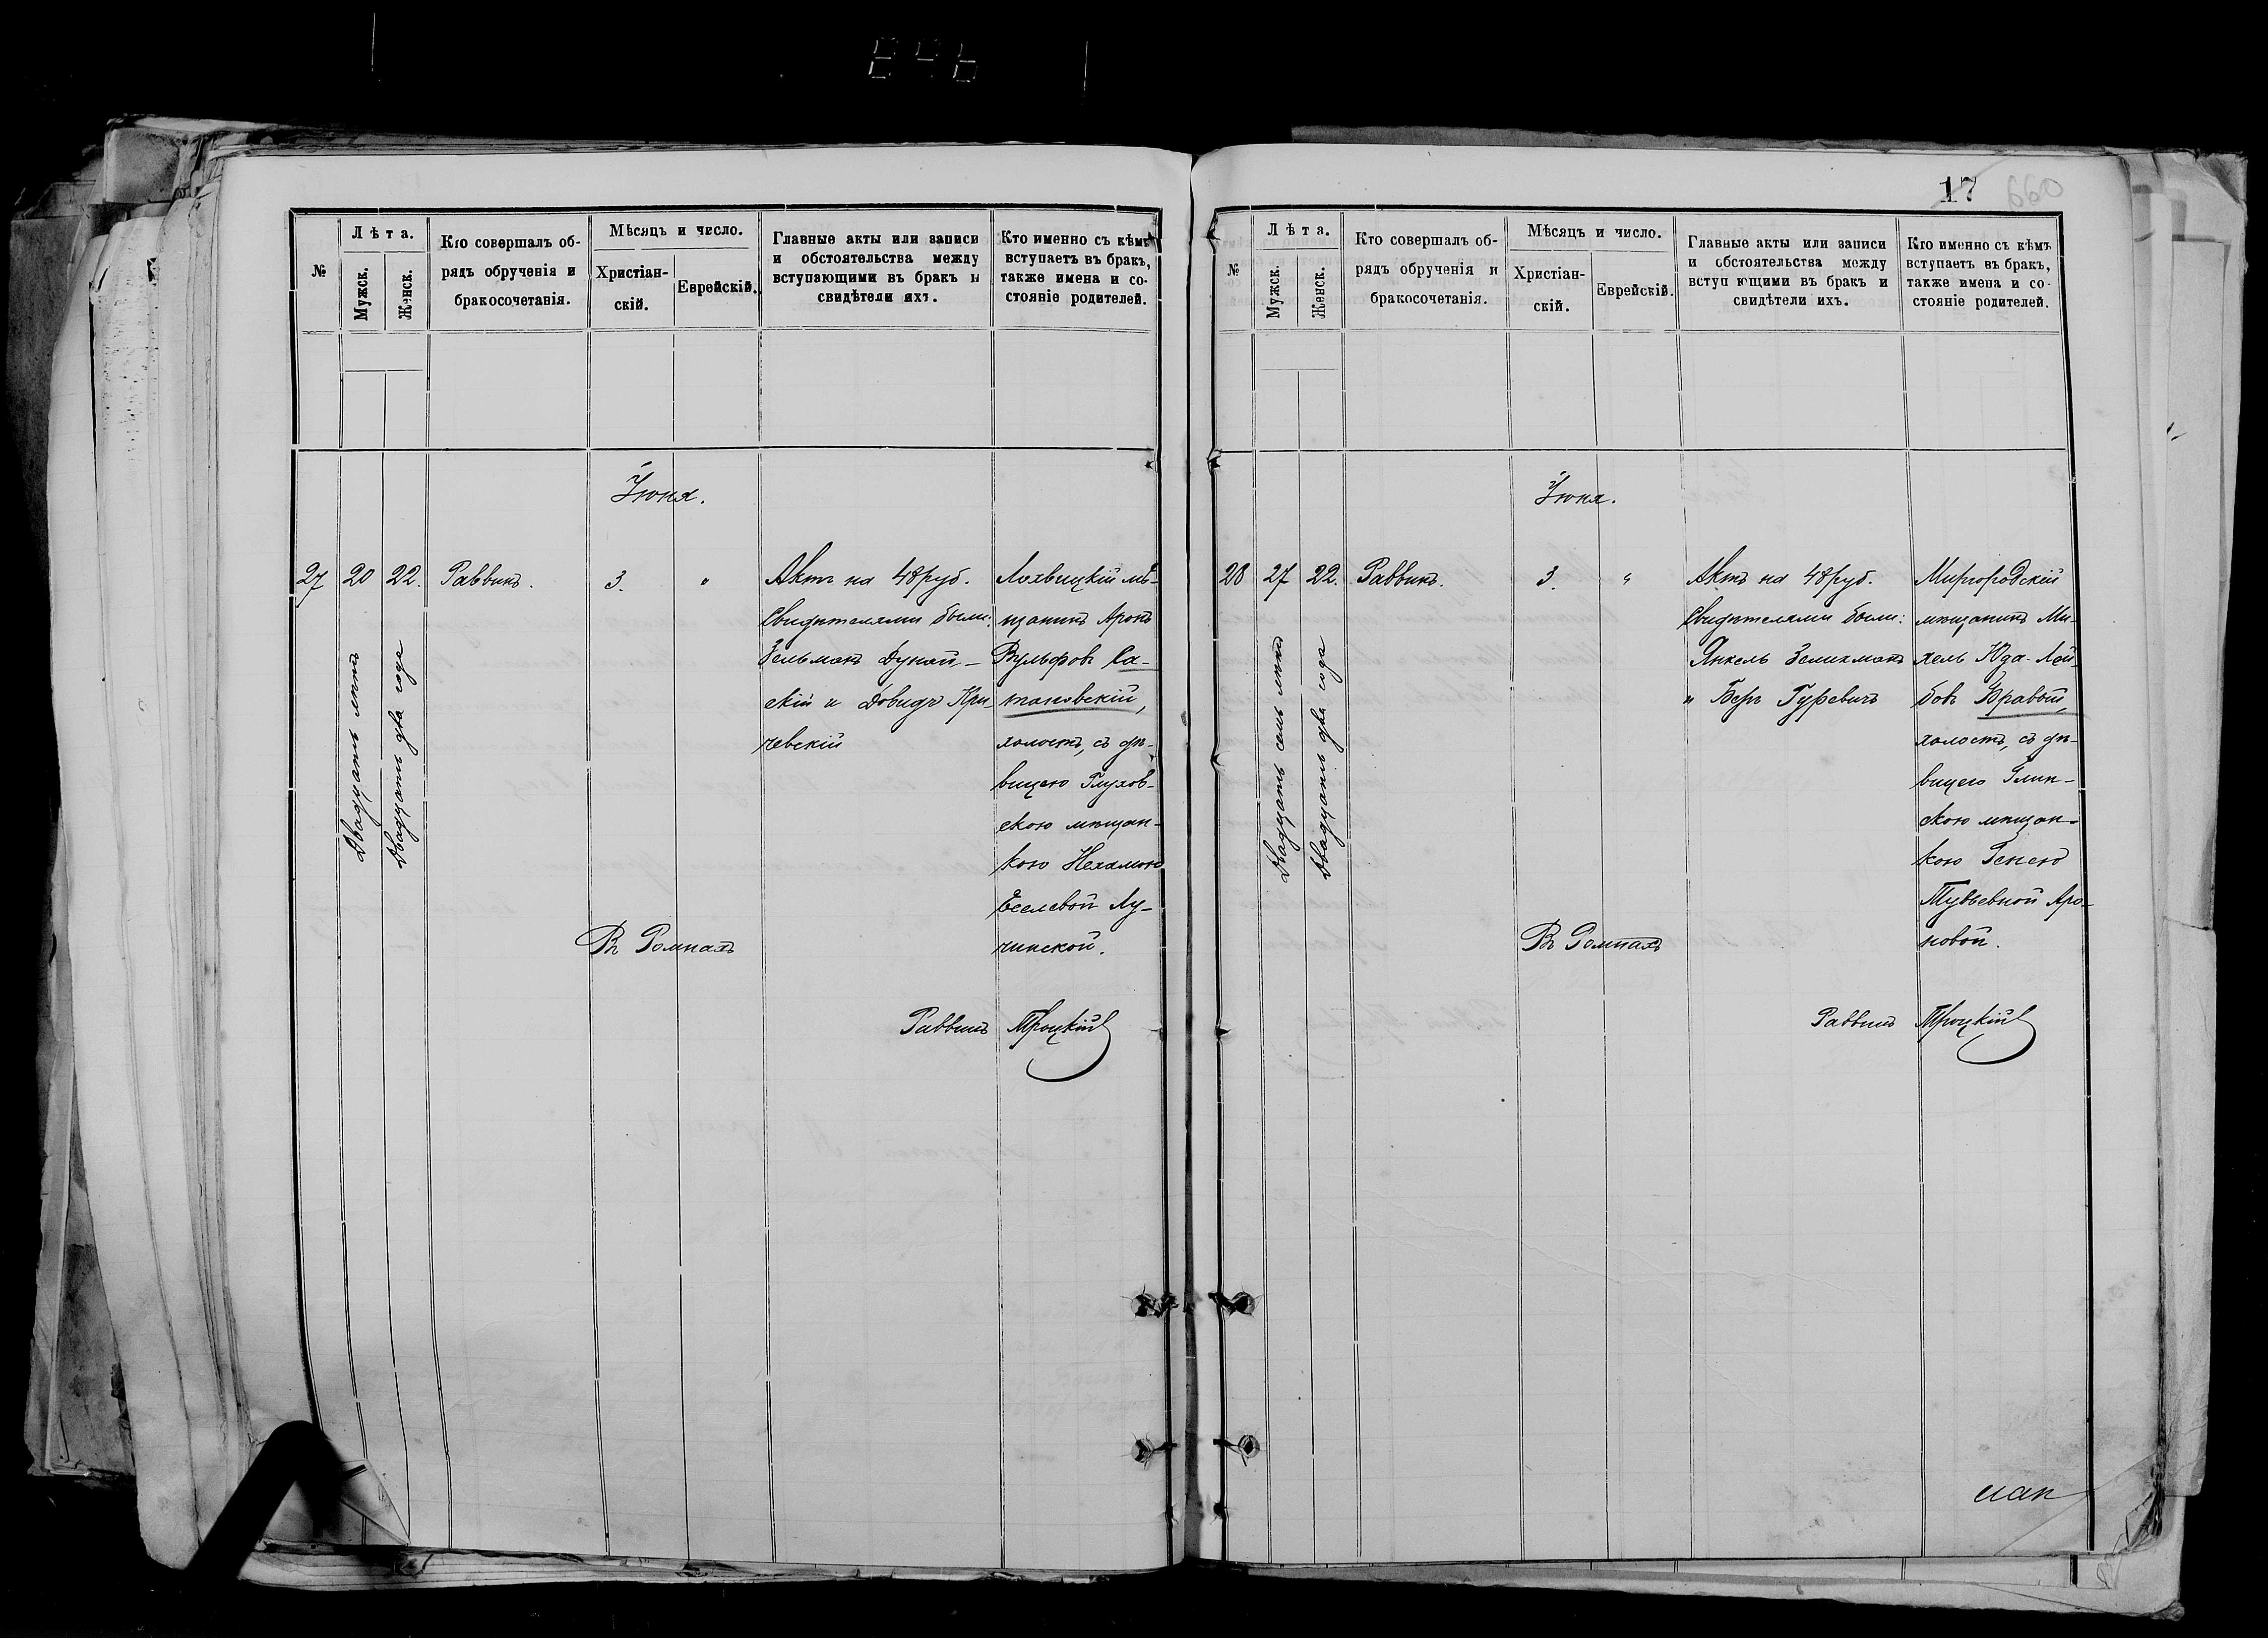 646
№
Лѣта.
Мужск.
Женск.
Кто совершалъ об-
рядъ обрученія и
бракосочетанія.
Мѣсяцъ и число.
Христіан-
скій.
Еврейскій.
Главные акты или записи
и обстоятельства между
вступающими въ бракъ и
свидѣтели ихъ.
Кто именно съ кѣмъ
вступаетъ въ бракъ,
также имена и со-
стояніе родителей.
Іюня.
27
20
22.
Двадцать лѣтъ
Двадцать два года
Раввинъ.
3.
"
Актъ на 48 руб.
Свидѣтелями были:
Зельманъ Дунай-
скій и Довидъ Кри-
чевскій
Лохвицкій мѣ-
щанинъ Аронъ
Вульфовъ Са-
тановскій,
холостъ, съ дѣ-
вицею Глухов-
скою мѣщан-
кою Нехамою
Еселевой Лу-
чинской.
Въ Ромнахъ
Раввинъ Троцкій
17 660
№
Лѣта.
Мужск.
Женск.
Кто совершалъ об-
рядъ обрученія и
бракосочетанія.
Мѣсяцъ и число.
Христіан-
скій.
Еврейскій.
Главные акты или записи
и обстоятельства между
вступ ющими въ бракъ и
свидѣтели ихъ.
Кто именно съ кѣмъ
вступаетъ въ бракъ,
также имена и со-
стояніе родителей.
Іюня.
28
27
22.
Двадцать семь лѣтъ
Двадцать два года
Раввинъ.
3.
"
Актъ на 48 руб.
Свидѣтелями были:
Янкель Зелихманъ
и Беръ Гуревичъ
Миргородскій
мѣщанинъ Ми-
хель Юда-Лей-
бовъ Кравый,
холостъ, съ дѣ-
вицею Глин-
скою мѣщан-
кою Генею
Тувьевной Аро-
новой.
Въ Ромнахъ
Раввинъ Троцкій